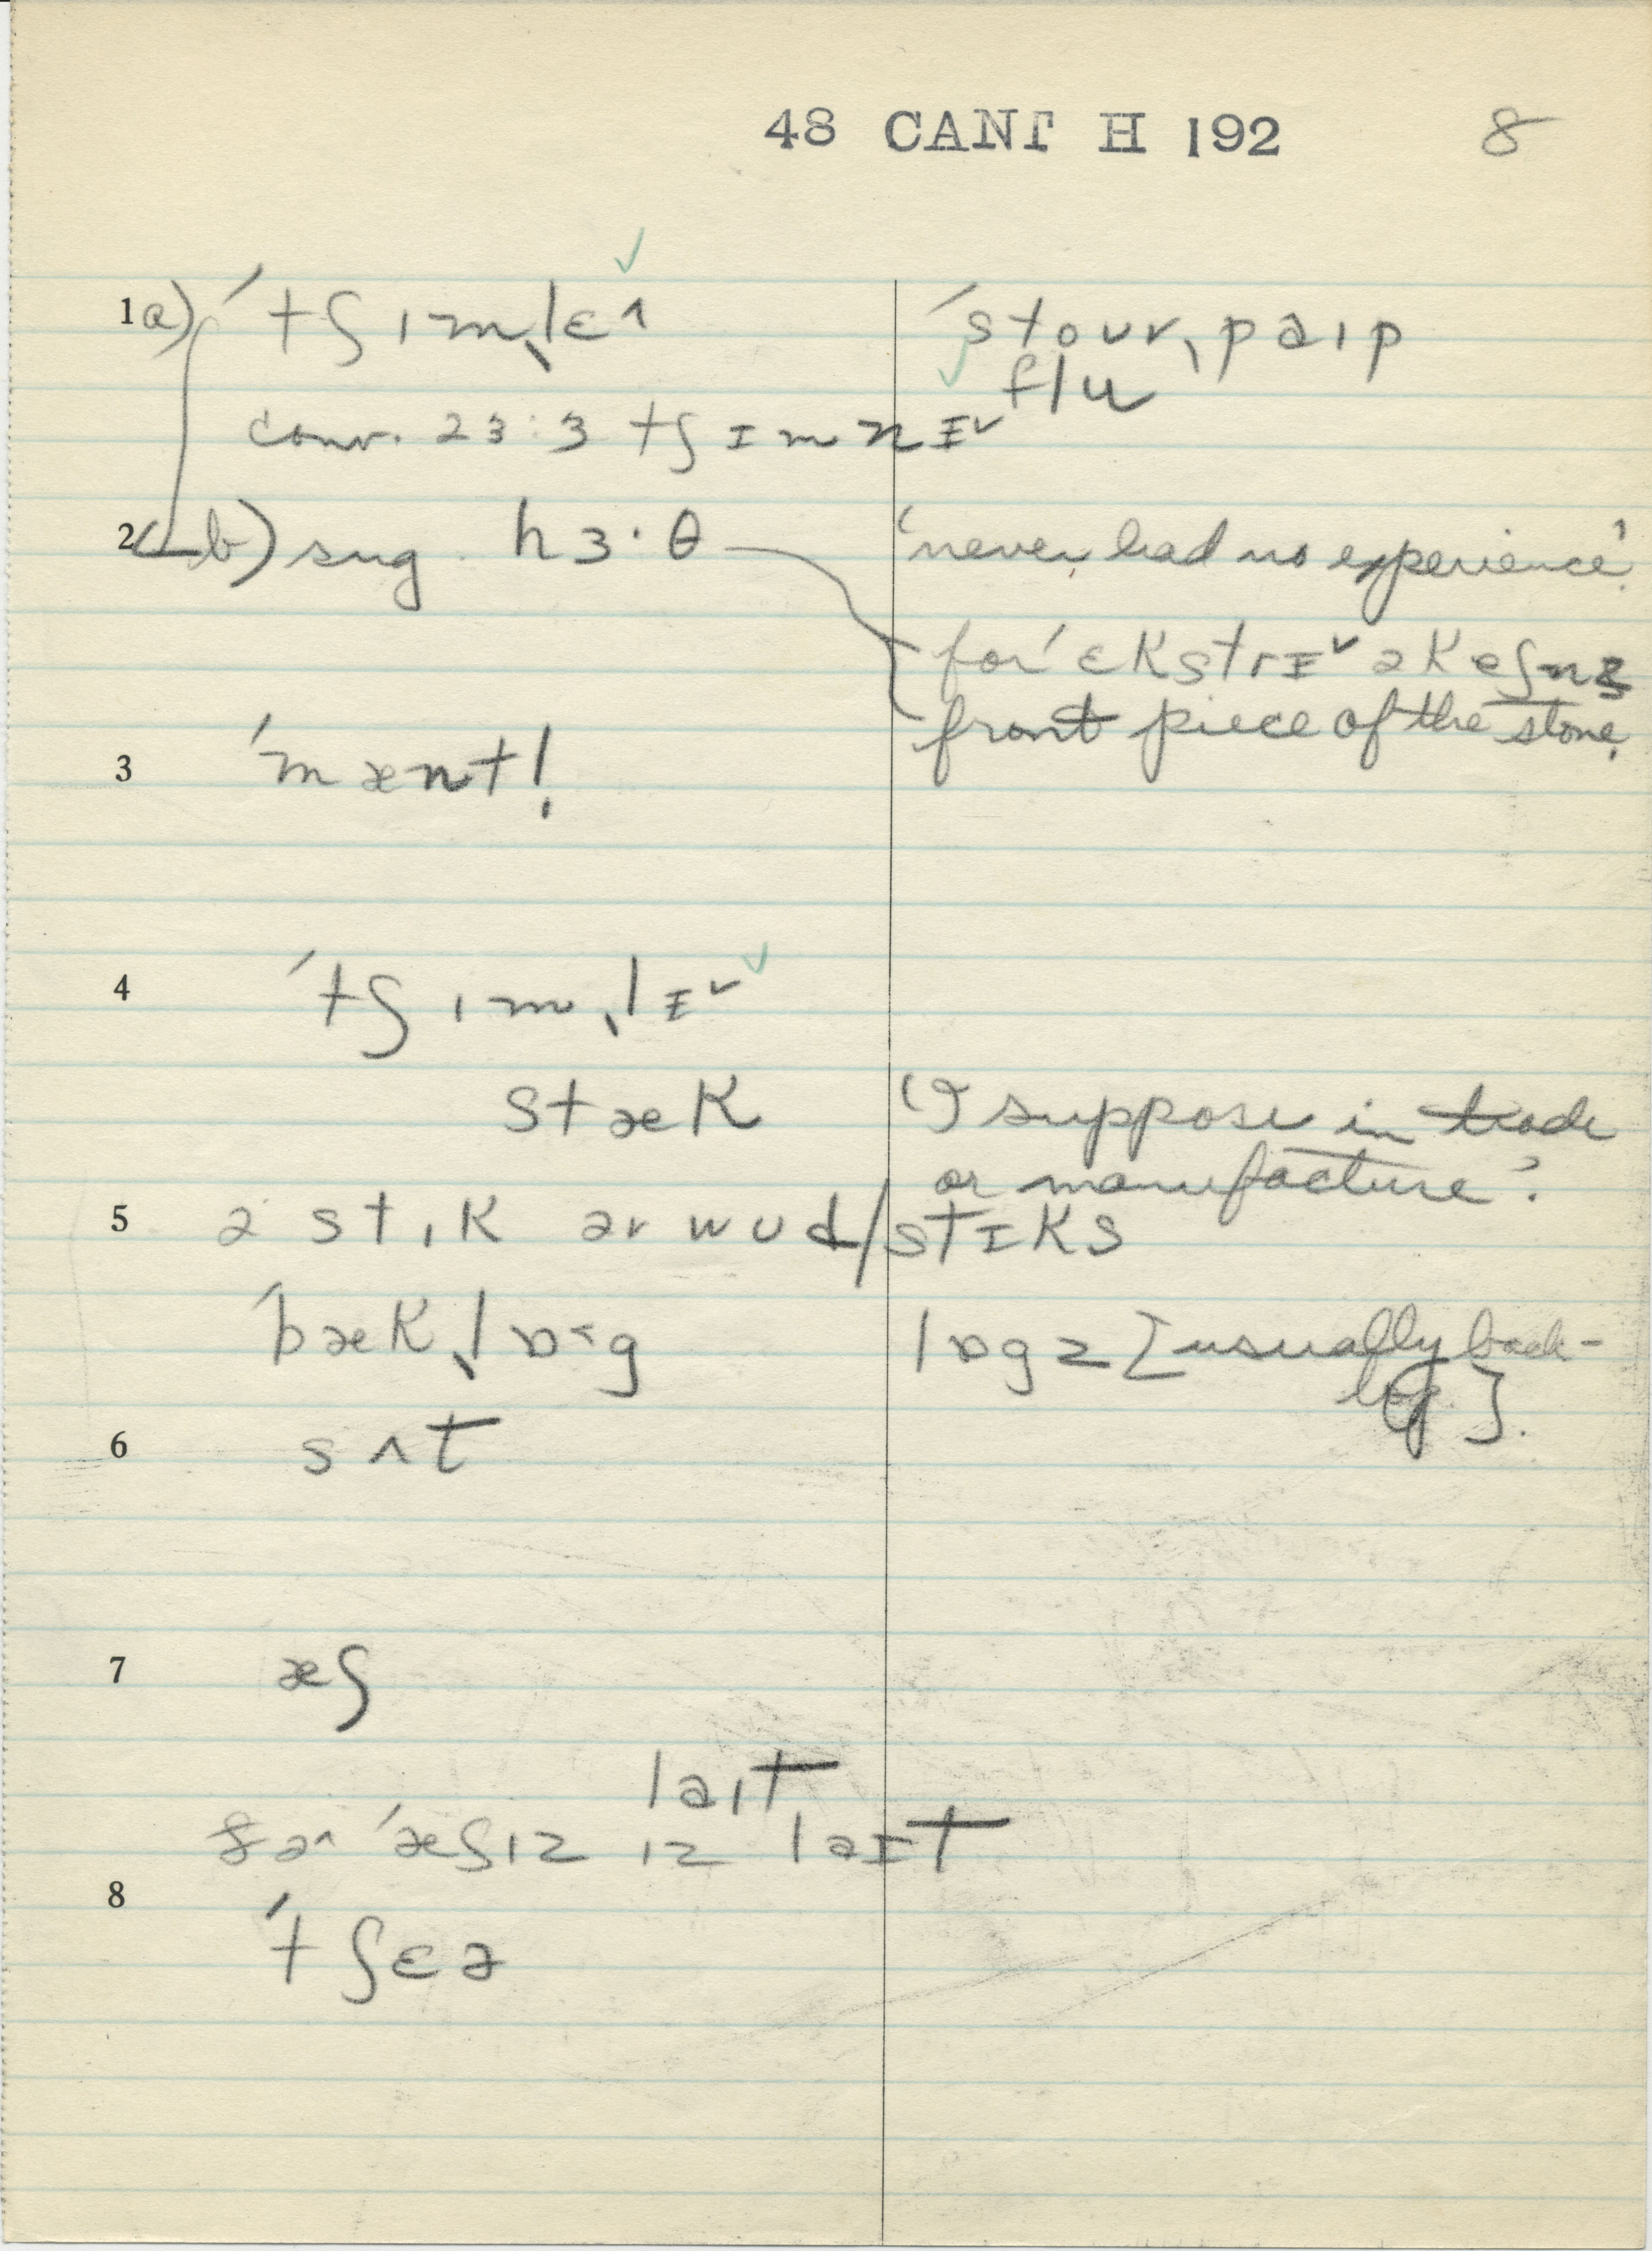 48 CANT H 192 8
1 a) ˈtʃɪmˌlɛ^ ˈstoʊrˌpaɪp
flu
conv. 23:3 tʃɪmnɪ˅
2 b) sug. hɜ·θ 'never had no experience'.
for ˈɛkstrɪ˅ əkeʃnz
front piece of the stone.
3 ˈmæntl̩
4 ˈtʃɪmˌlɪ˅
stæk 'I suppose in trade
or manufacture'.
5 ə stɪk ər wud/stɪks
ˈbækˌlɒ˂g lɒgz [usually back-
log.].
6 sʌt
7 æʃ
laɪt
ðə^ ˈæʃɪz ɪz laɪt
8 ˈtʃɛə